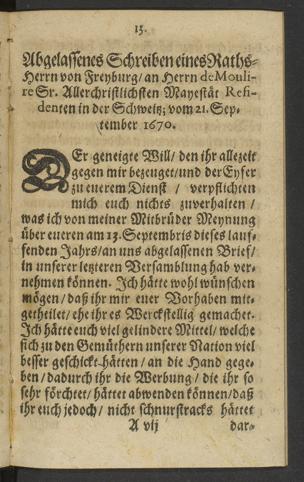 15.
Abgelassenes Schreiben eines Raths-
Herrn von Freyburg/ an Herrn de Mouli-
re Sr. Allerchristlichsten Mayestät Resi-
denten in der Schweitz; vom 21. Sep-
tember 1670.
DEr geneigte Will/ den ihr allezeit
gegen mir bezeuget/ und der Eyfer
zu euerem Dienst / verpflichten
mich euch nichts zuverhalten /
was ich von meiner Mitbrüder Meynung
über eueren am 13. Septembris dieses lauf-
fenden Jahrs/ an uns abgelassenen Brief/
in unserer letzteren Versamblung hab ver-
nehmen können. Ich hätte wohl wünschen
mögen/ daß ihr mir euer Vorhaben mit-
getheilet/ ehe ihr es Werckstellig gemachet.
Ich hätte euch viel gelindere Mittel/ welche
sich zu den Gemüthern unserer Nation viel
besser geschickt hätten/ an die Hand gege-
ben/ dadurch ihr die Werbung/ die ihr so
sehr förchtet/ hättet abwenden können/ daß
ihr euch jedoch/ nicht schnurstracks hättet
A vij dar-